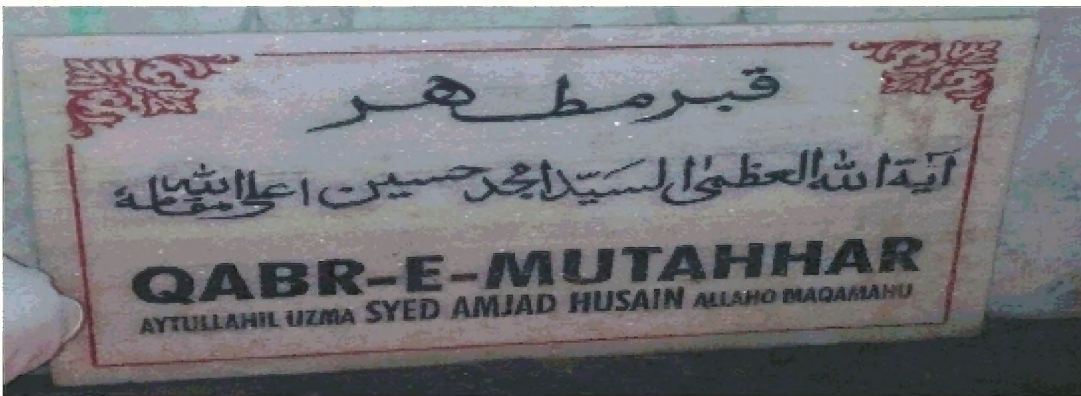 قبر مطهر
آية الله العظمىٰ السيّد امجد حسين اعلى الله مقامه
QABR-E-MUTAHHAR
AYTULLAHIL UZMA SYED AMJAD HUSAIN ALLAHO MAQAMAHU